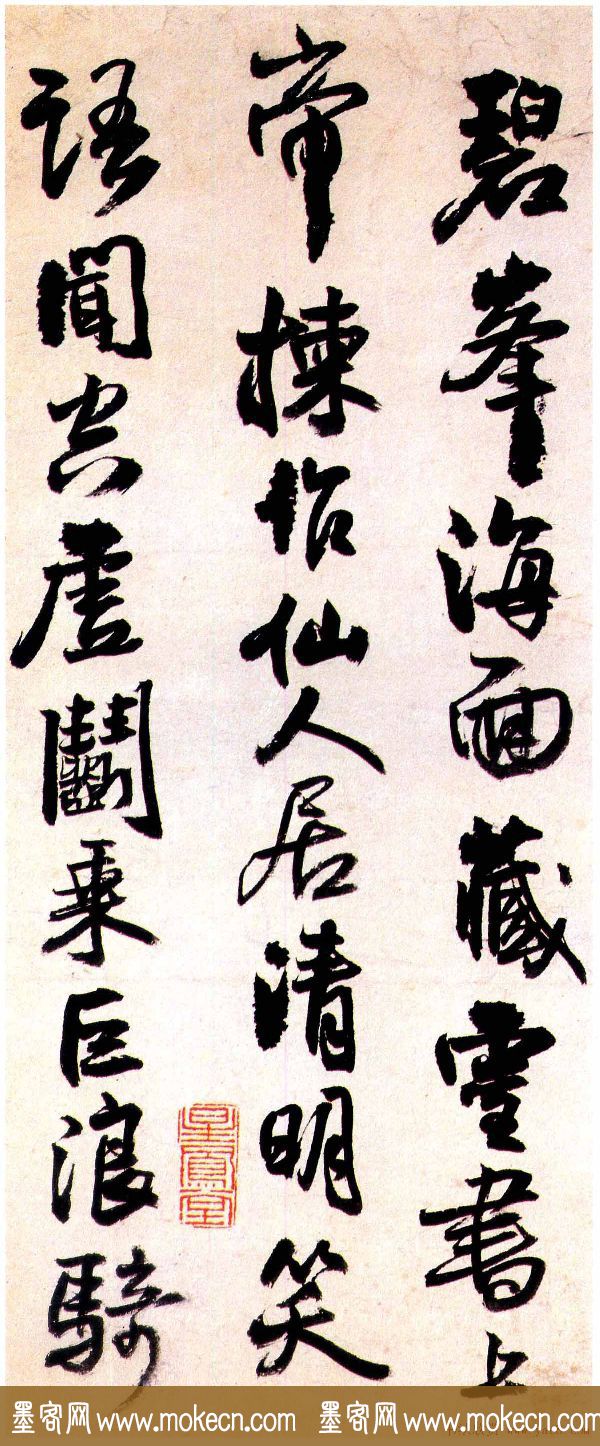 碧峯海面藏靈書上
帝揀作仙人居清明笑
語聞空虛鬭乘巨浪騎
墨客网 www.mokecn.com 墨客网 www.mokecn.com